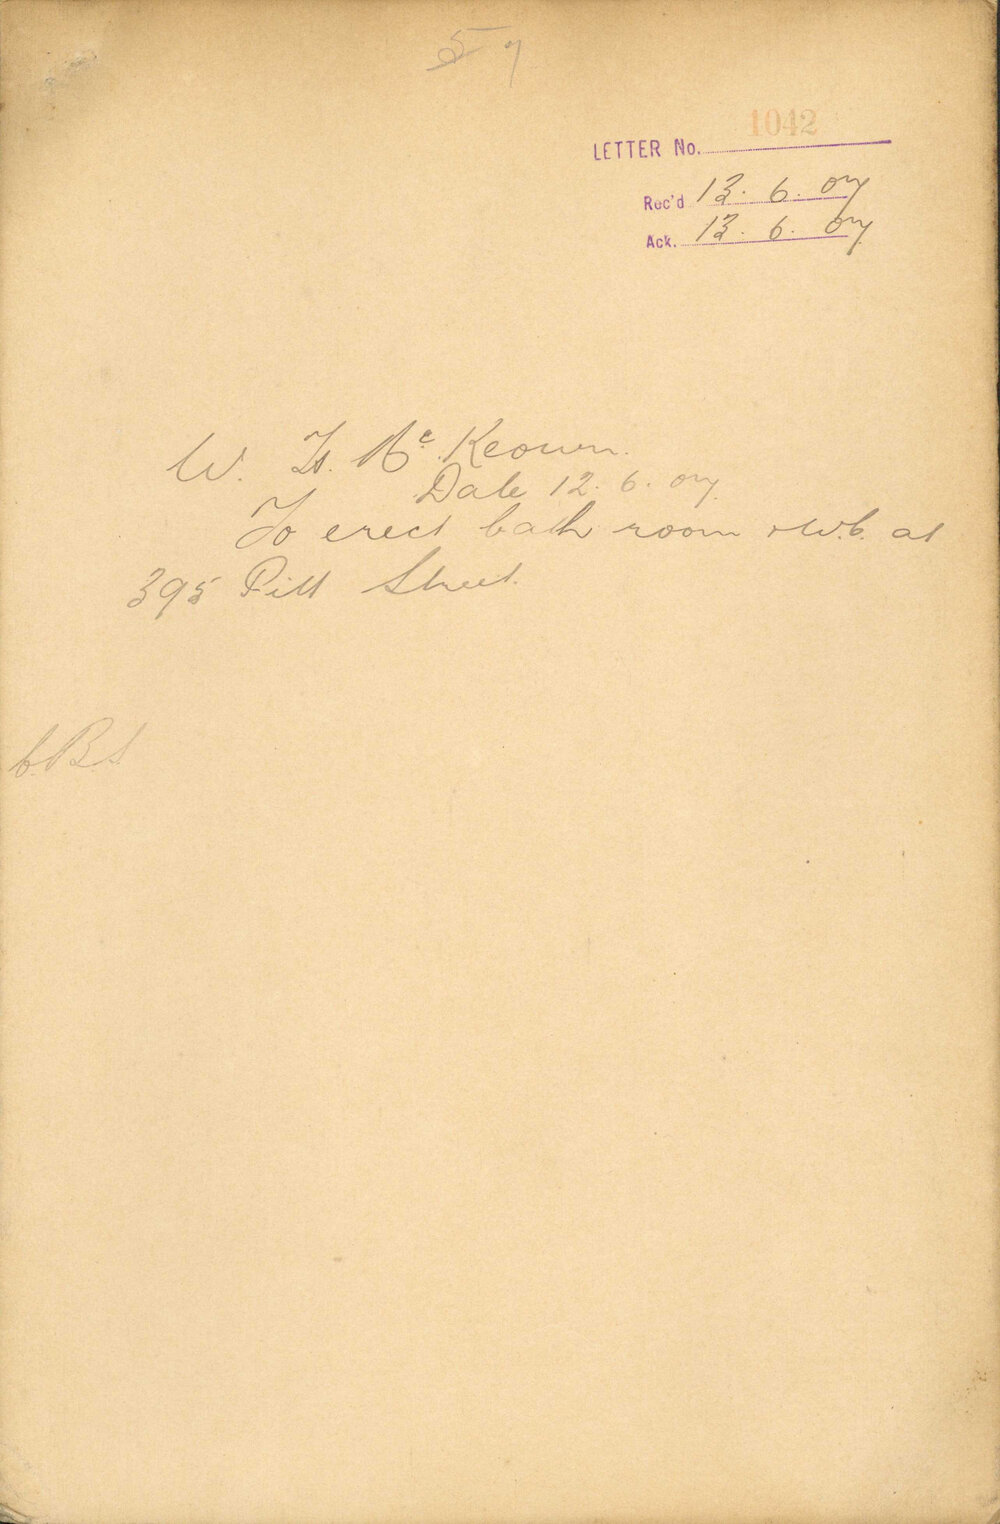 57
1042
LETTER No.
Rec'd 13. 6. 07
Ack. 13. 6. 07
W. H. Mc Keown.
Date 12. 6. 07.
To erect bath room & W.C. at
395 Pitt Street.
C.B.S.